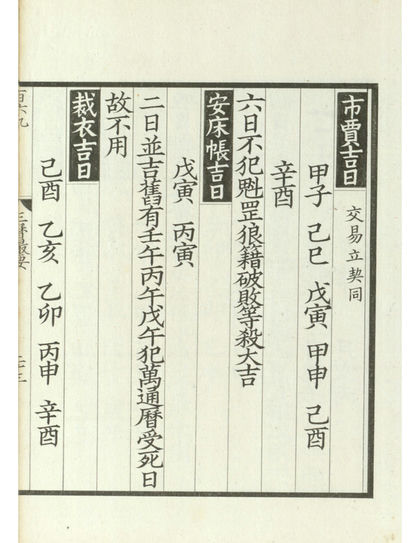 市賈吉日 交易立契同
甲子 己巳 戊寅 甲申 己酉
辛酉
六日不犯魁罡狼籍破敗等殺大吉
安床帳吉日
戊寅 丙寅
二日並吉舊有壬午丙午戊午犯萬通曆受死日
故不用
裁衣吉日
己酉 乙亥 乙卯 丙申 辛酉